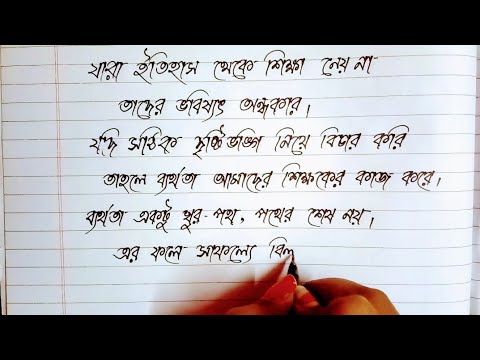 যারা ইতিহাস থেকে শিক্ষা নেয় না
তাদের ভবিষ্যৎ অন্ধকার।
যদি সঠিক দৃষ্টিভঙ্গি নিয়ে বিচার করি
তাহলে ব্যর্থতা আমাদের শিক্ষকের কাজ করে।
ব্যর্থতা একটু ঘুর-পথ, পথের শেষ নয়।
এর ফলে সাফল্যে বিল